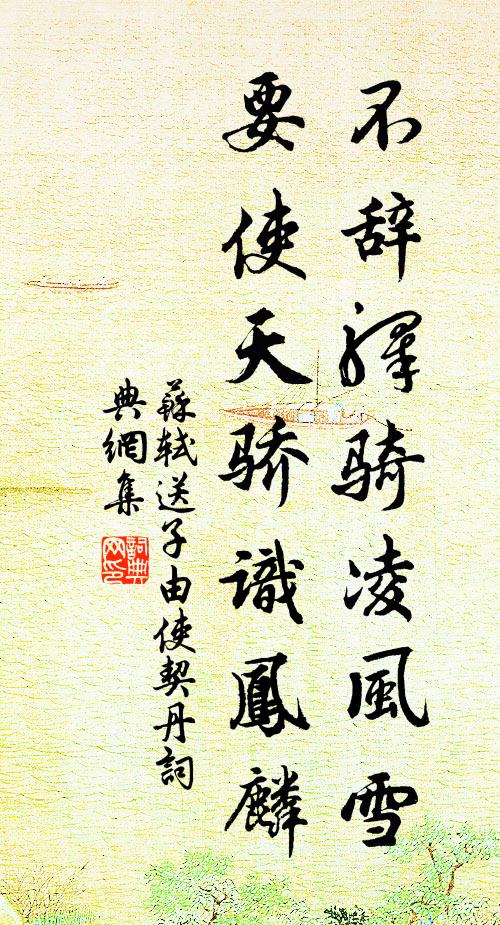 不辞驛骑凌風雪
要使天骄識鳳麟
蘇軾送子由使契丹詞
典網集
詞典
网印